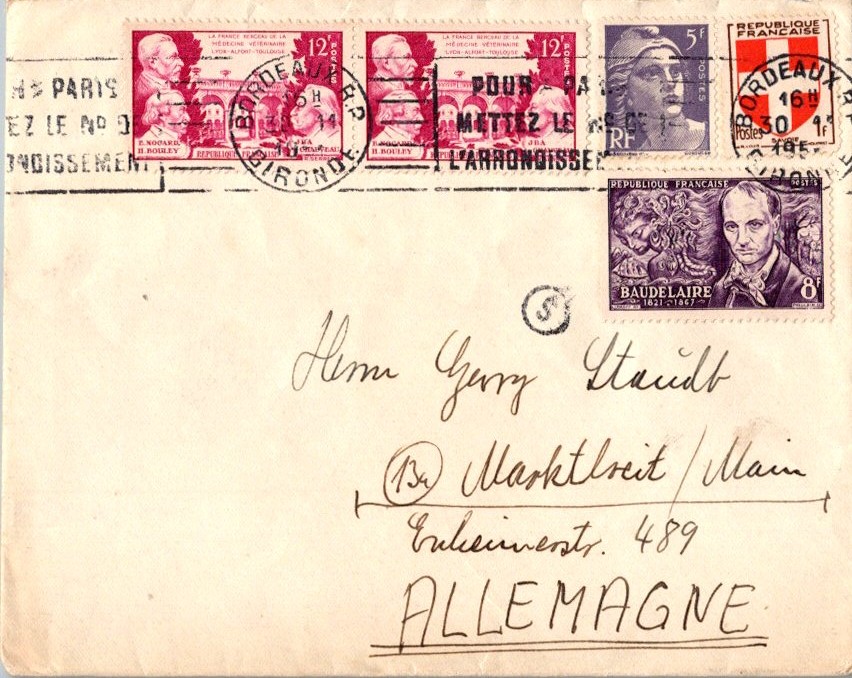 LA FRANCE BERCEAU DE LA
MÉDECINE VÉTÉRINAIRE
LYON-ALFORT-TOULOUSE
12F
POSTES
E. NOCARD.
H. BOULEY
J.BA
CHAUVEAU
REPUBLIQUE FRANÇAISE
LA FRANCE BERCEAU DE LA
MÉDECINE VÉTÉRINAIRE
LYON-ALFORT-TOULOUSE
12F
POSTES
E. NOCARD.
H. BOULEY
J.BA
REPUBLIQUE
5F
POSTES
RF
REPUBLIQUE
FRANÇAISE
Postes
SAVOIE
1F
PARIS
EZ LE No D
ONDISSEMENT
BORDEAUX R.P.
16H
30 - 11
GIRONDE
POUR PA
METTEZ LE No DE
L'ARRONDISSEM
BORDEAUX R
16H
30 - 11
195
GIRON
REPUBLIQUE FRANÇAISE
POSTES
BAUDELAIRE
1821-1867
8F
S
Herrn Georg Staudt
13a Marktbreit / Main
Enheimerstr. 489
ALLEMAGNE